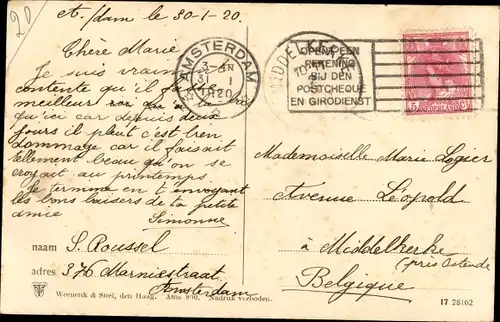 20
A./dam le 30-1-20.
Chère Marie
Je suis vraim
contente qu'il fai
meilleur
qu'ici car depuis deux
jours il pleut c'est bien
dommage car il faisait
tellement beau qu'on se
croyait au printemps
Je termine en t'envoyant
les bons baisers de ta petite
amie
Simonne
naam S. Roussel
adres 376 Marnixstraat
Amsterdam
Weenenk & Snel, den Haag. Ams 890. Nadruk verboden.
AMSTERDAM
31 I
1920
MIDDELKERKE
OPENT EEN
REKENING
BIJ DEN
POSTCHEQUE
EN GIRODIENST
NEDERLAND
5
Mademoiselle Marie Logier
Avenue Léopold
à Middelkerke
(près Ostende
Belgique
17 78162